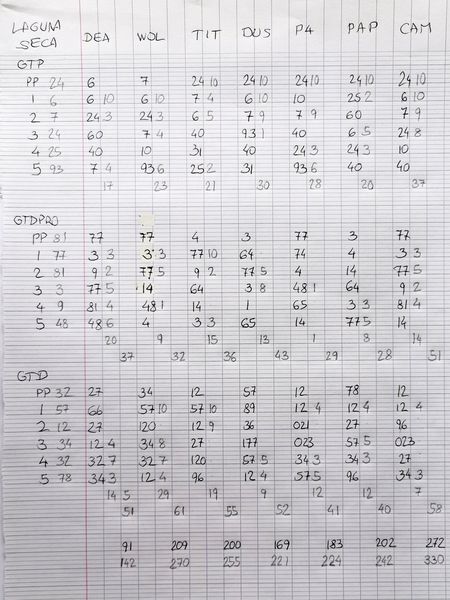 LAGUNA SECA DEA WOL TIT DUS P4 PAP CAM
GTP
PP 24 6 7 24 10 24 10 24 10 24 10 24 10
1 6 6 10 6 10 7 4 6 10 10 25 2 6 10
2 7 24 3 24 3 6 5 7 9 7 9 60 7 9
3 24 60 7 4 40 93 1 40 6 5 24 8
4 25 40 10 31 40 24 3 24 3 10
5 93 7 4 93 6 25 2 31 93 6 40 40
17 23 21 30 28 20 37
GTDPRO
PP 81 77 77 4 3 77 3 77
1 77 3 3 3 3 77 10 64 74 4 3 3
2 81 9 2 77 5 9 2 77 5 4 14 77 5
3 3 77 5 14 64 3 8 48 1 64 9 2
4 9 81 4 48 1 14 1 65 3 3 81 4
5 48 48 6 4 3 3 65 14 77 5 14
20 9 15 13 1 8 14
37 32 36 43 29 28 51
GTD
PP 32 27 34 12 57 12 78 12
1 57 66 57 10 57 10 89 12 4 12 4 12 4
2 12 27 120 12 9 36 021 27 96
3 34 12 4 34 8 27 177 023 57 5 023
4 32 32 7 32 7 120 57 5 34 3 34 3 27
5 78 34 3 12 4 96 12 4 57 5 96 34 3
14 5 29 19 9 12 12 7
51 61 55 52 41 40 58
91 209 200 169 183 202 272
142 270 255 221 224 242 330